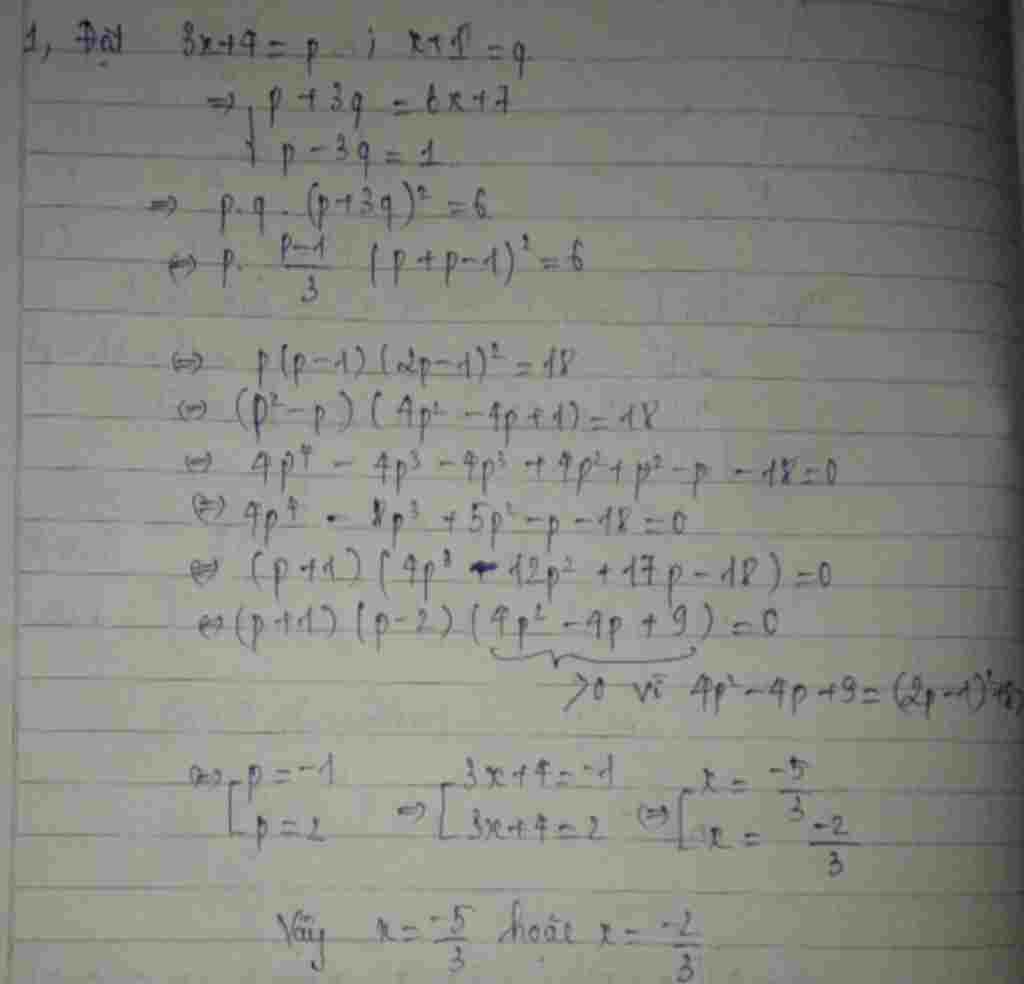 1, Đặt 3x+4 = p ; x+1 = q
⇒ { p + 3q = 6x+7
p - 3q = 1
⇒ p.q.(p+3q)² = 6
⇔ p. (p-1)/3 (p+p-1)² = 6
⇔ p(p-1)(2p-1)² = 18
⇔ (p²-p)(4p²-4p+1) = 18
⇔ 4p⁴ - 4p³ - 4p³ + 4p² + p² - p - 18 = 0
⇔ 4p⁴ - 8p³ + 5p² - p - 18 = 0
⇔ (p+1)(4p³ - 12p² + 17p - 18) = 0
⇔ (p+1)(p-2)(4p² - 4p + 9) = 0
>0 vì 4p² - 4p + 9 = (2p-1)²+8>
⇔ [ p = -1 ⇒ [ 3x+4 = -1 ⇔ [ x = -5/3
p = 2 3x+4 = 2 x = -2/3
Vậy x = -5/3 hoặc x = -2/3